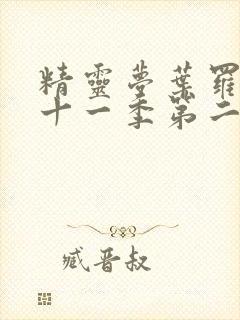 精靈夢葉羅
十一季第二
臧晋叔